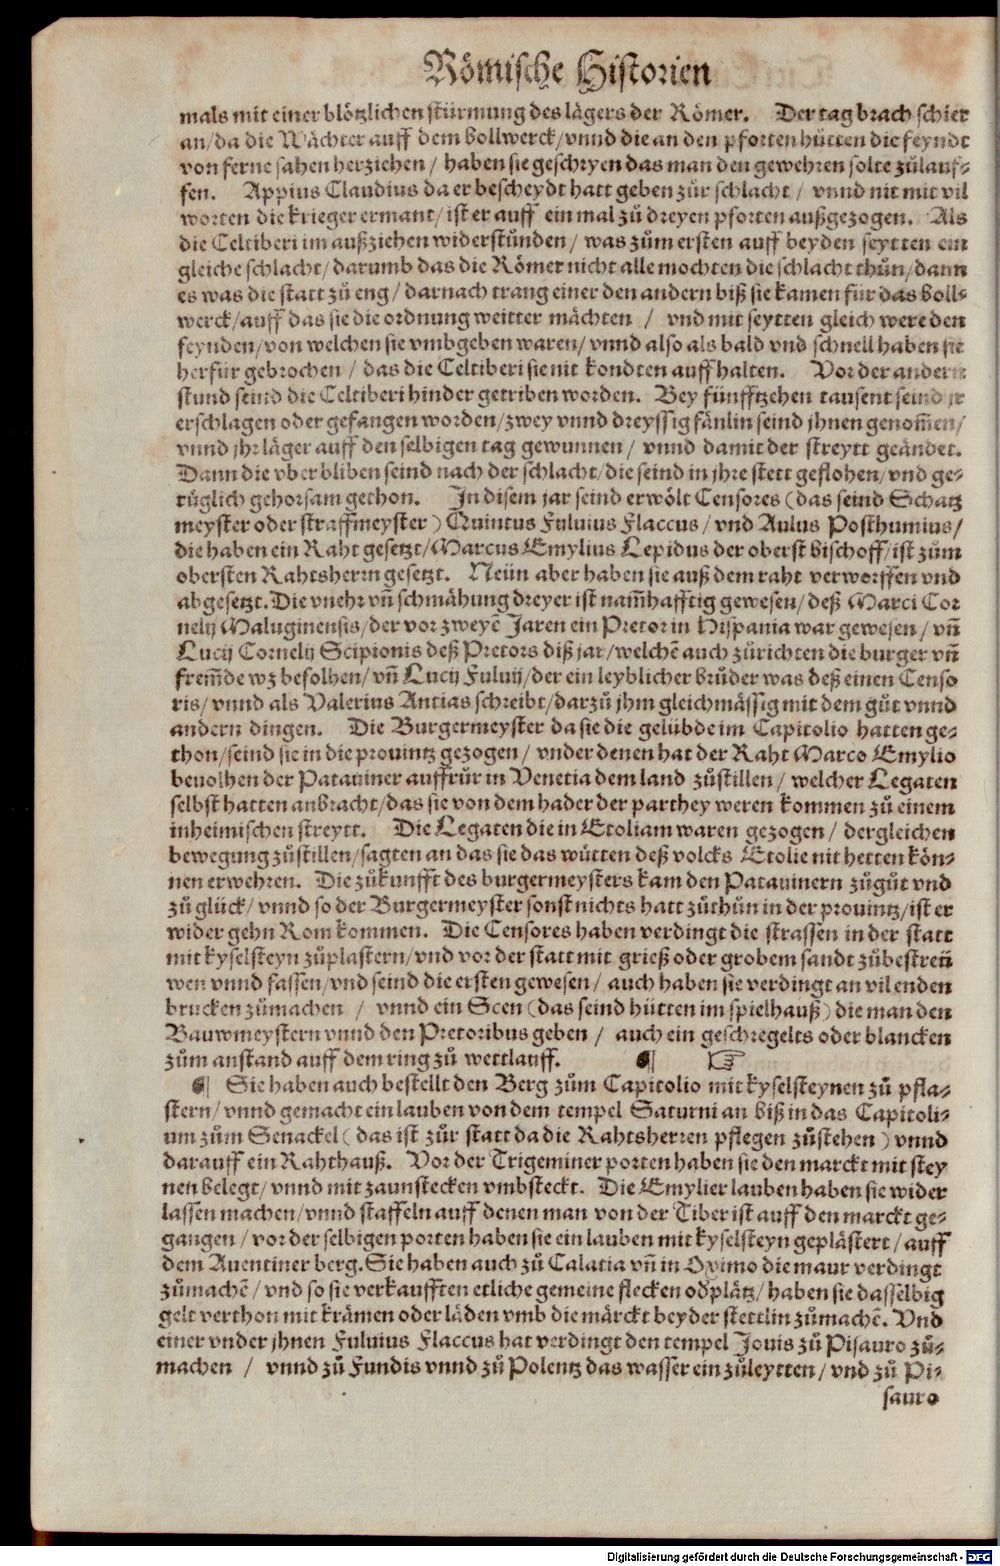 Römische Historien
mals mit einer blötzlichen stürmung des lägers der Römer. Der tag brach schier
an/da die Wächter auff dem bollwerck/vnnd die an den pforten hütten die feyndt
von ferne sahen herziehen / haben sie geschryen das man den gewehren solte zůlauf⸗
fen. Appius Claudius da er bescheydt hatt geben zůr schlacht / vnnd nit mit vil
worten die krieger ermant/ ist er auff ein mal zů dreyen pforten außgezogen. Als
die Celtiberi im außziehen widerstůnden / was zům ersten auff beyden seytten ein
gleiche schlacht/ darumb das die Römer nicht alle mochten die schlacht thůn/ dann
es was die statt zů eng / darnach trang einer den andern biß sie kamen für das boll⸗
werck/auff das sie die ordnung weitter mächten / vnd mit seytten gleich were den
feynden/von welchen sie vmbgeben waren/ vnnd also als bald vnd schnell haben sie
herfür gebrochen / das die Celtiberi sie nit kondten auff halten. Vor der andern
stund seind die Celtiberi hinder getriben worden. Bey fünfftzehen tausent seind jr
erschlagen oder gefangen worden/ zwey vnnd dreyssig fänlin seind jhnen genom̃en/
vnnd jhr läger auff den selbigen tag gewunnen / vnnd damit der streytt geändet.
Dann die vber bliben seind nach der schlacht/die seind in jhre stett geflohen/vnd ge⸗
rüglich gehorsam gethon. In disem jar seind erwölt Censores (das seind Schatz
meyster oder straffmeyster) Quintus Fuluius Flaccus / vnd Aulus Posthumius/
die haben ein Raht gesetzt/Marcus Emylius Lepidus der oberst bischoff/ist zům
obersten Rahtsherrn gesetzt. Neün aber haben sie auß dem raht verworffen vnd
abgesetzt. Die vnehr vñ schmähung dreyer ist nam̃hafftig gewesen/ deß Marci Cor
nelij Maluginensis/der vor zweyẽ Jaren ein Pretor in Hispania war gewesen / vñ
Lucij Cornelij Scipionis deß Pretors diß jar/welchẽ auch zůrichten die burger vñ
frem̃de wz befolhen/ vñ Lucij Fuluij/der ein leyblicher brůder was deß einen Censo
ris/ vnnd als Valerius Antias schreibt/darzů jhm gleichmässig mit dem gůt vnnd
andern dingen. Die Burgermeyster da sie die gelübde im Capitolio hatten ge⸗
thon/seind sie in die prouintz gezogen / vnder denen hat der Raht Marco Emylio
beuolhen der Patauiner auffrůr in Venetia dem land zůstillen / welcher Legaten
selbst hatten anbracht/das sie von dem hader der parthey weren kommen zů einem
inheimischen streytt. Die Legaten die in Etoliam waren gezogen / dergleichen
bewegung zůstillen/sagten an das sie das wütten deß volcks Etolie nit hetten kön⸗
nen erwehren. Die zůkunfft des burgermeysters kam den Patauinern zůgůt vnd
zů glück/ vnnd so der Burgermeyster sonst nichts hatt zůthůn in der prouintz/ist er
wider gehn Rom kommen. Die Censores haben verdingt die strassen in der statt
mit kyselsteyn zůplastern/vnd vor der statt mit grieß oder grobem sandt zůbestreü
wen vnnd fassen/vnd seind die ersten gewesen / auch haben sie verdingt an vil enden
brucken zůmachen / vnnd ein Scen (das seind hütten im spielhauß) die man den
Bauwmeystern vnnd den Pretoribus geben / auch ein geschregelts oder blancken
zům anstand auff dem ring zů wettlauff. ¶ ☞
¶ Sie haben auch bestellt den Berg zům Capitolio mit kyselsteynen zů pfla⸗
stern/ vnnd gemacht ein lauben von dem tempel Saturni an biß in das Capitoli⸗
um zům Senackel (das ist zůr statt da die Rahtsherren pflegen zůstehen) vnnd
darauff ein Rahthauß. Vor der Trigeminer porten haben sie den marckt mit stey
nen belegt/ vnnd mit zaunstecken vmbsteckt. Die Emylier lauben haben sie wider
lassen machen/vnnd staffeln auff denen man von der Tiber ist auff den marckt ge⸗
gangen / vor der selbigen porten haben sie ein lauben mit kyselsteyn geplästert / auff
dem Auentiner berg. Sie haben auch zů Calatia vñ in Oximo die maur verdingt
zůmachẽ / vnd so sie verkaufften etliche gemeine flecken od̓plätz/ haben sie dasselbig
gelt verthon mit krämen oder läden vmb die märckt beyder stettlin zůmachẽ. Vnd
einer vnder jhnen Fuluius Flaccus hat verdingt den tempel Jouis zů Pisauro zů⸗
machen / vnnd zů Fundis vnnd zů Polentz das wasser ein zůleytten / vnd zů Pi⸗
sauro
Digitalisierung gefördert durch die Deutsche Forschungsgemeinschaft - DFG